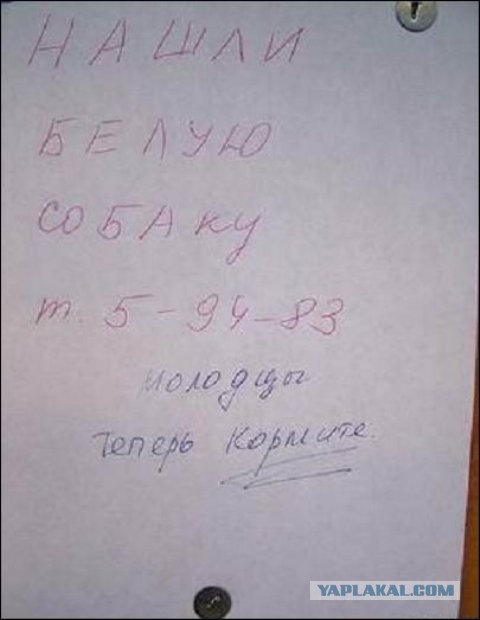 НАШЛИ
БЕЛУЮ
СОБАКУ
т. 5-94-83
молодцы
Теперь кормите.
YAPLAKAL.COM